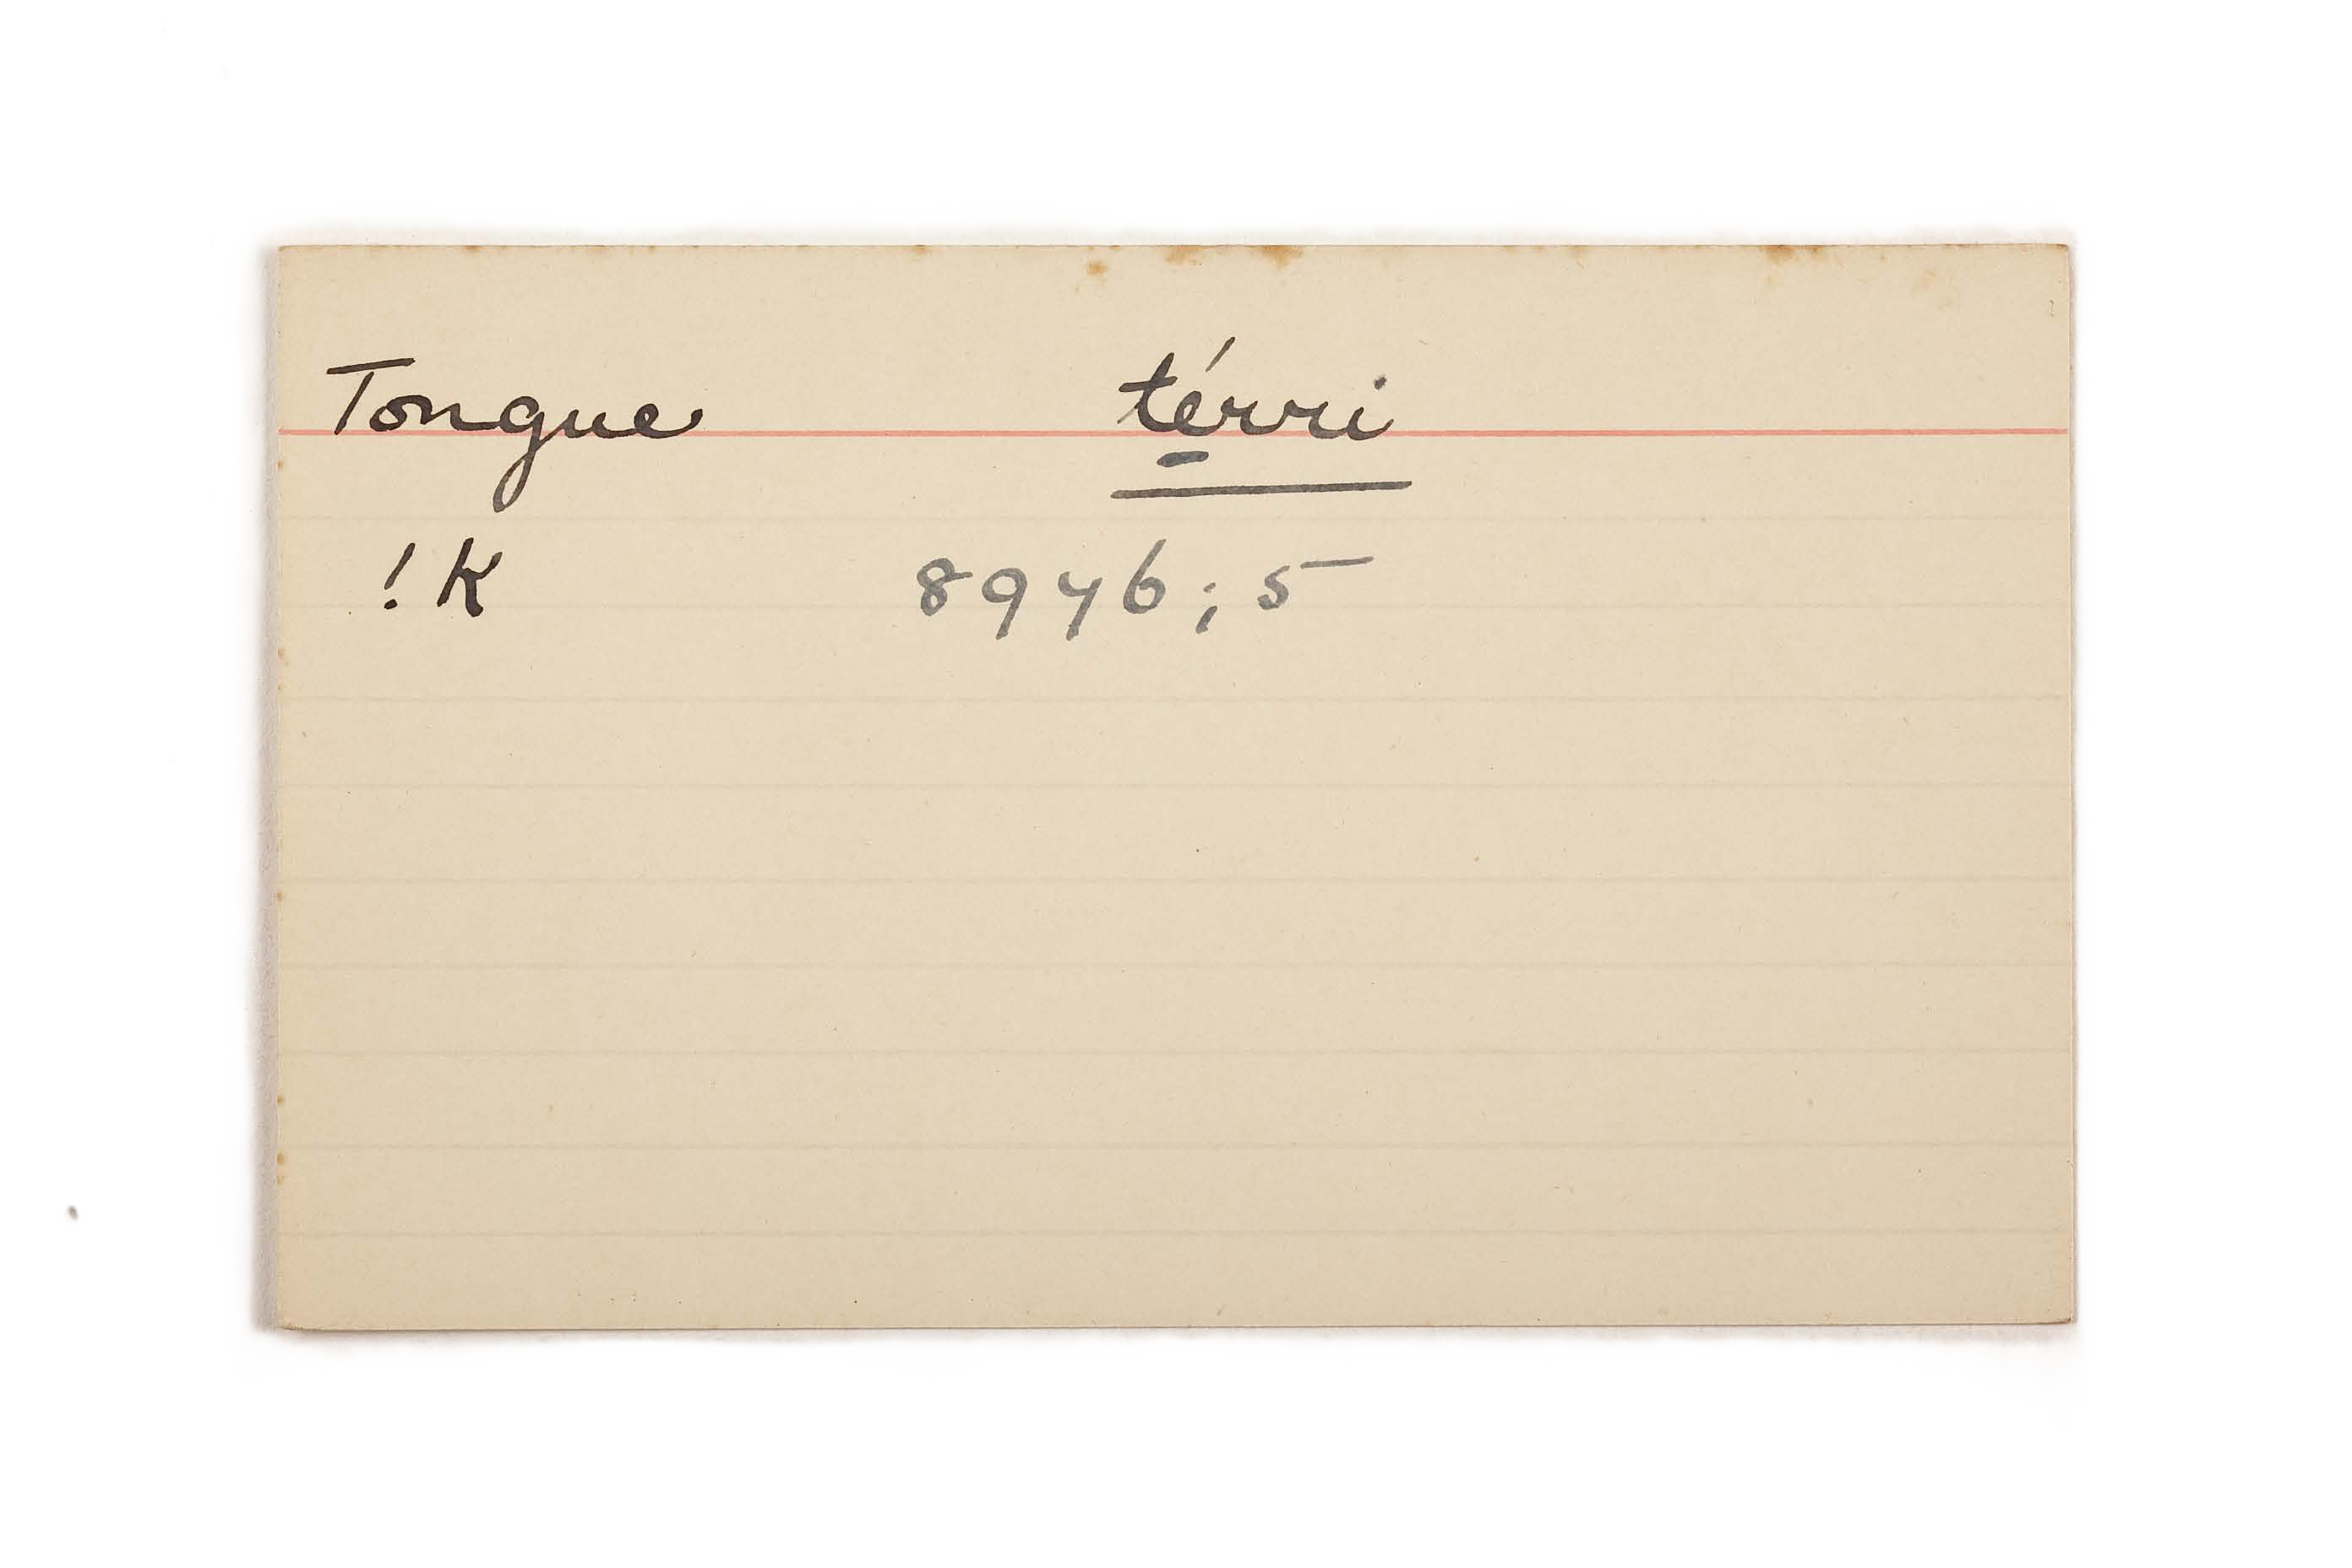 Tongue térri
! K 8946; 5